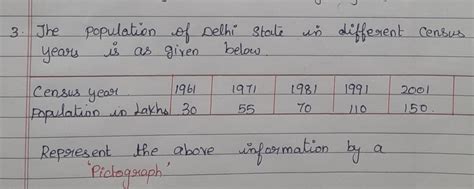 3. The population of Delhi State in different Census
years is as given below.
Census year 1961 1971 1981 1991 2001
Population in Lakhs 30 55 70 110 150.
Represent the above information by a
'Pictograph'